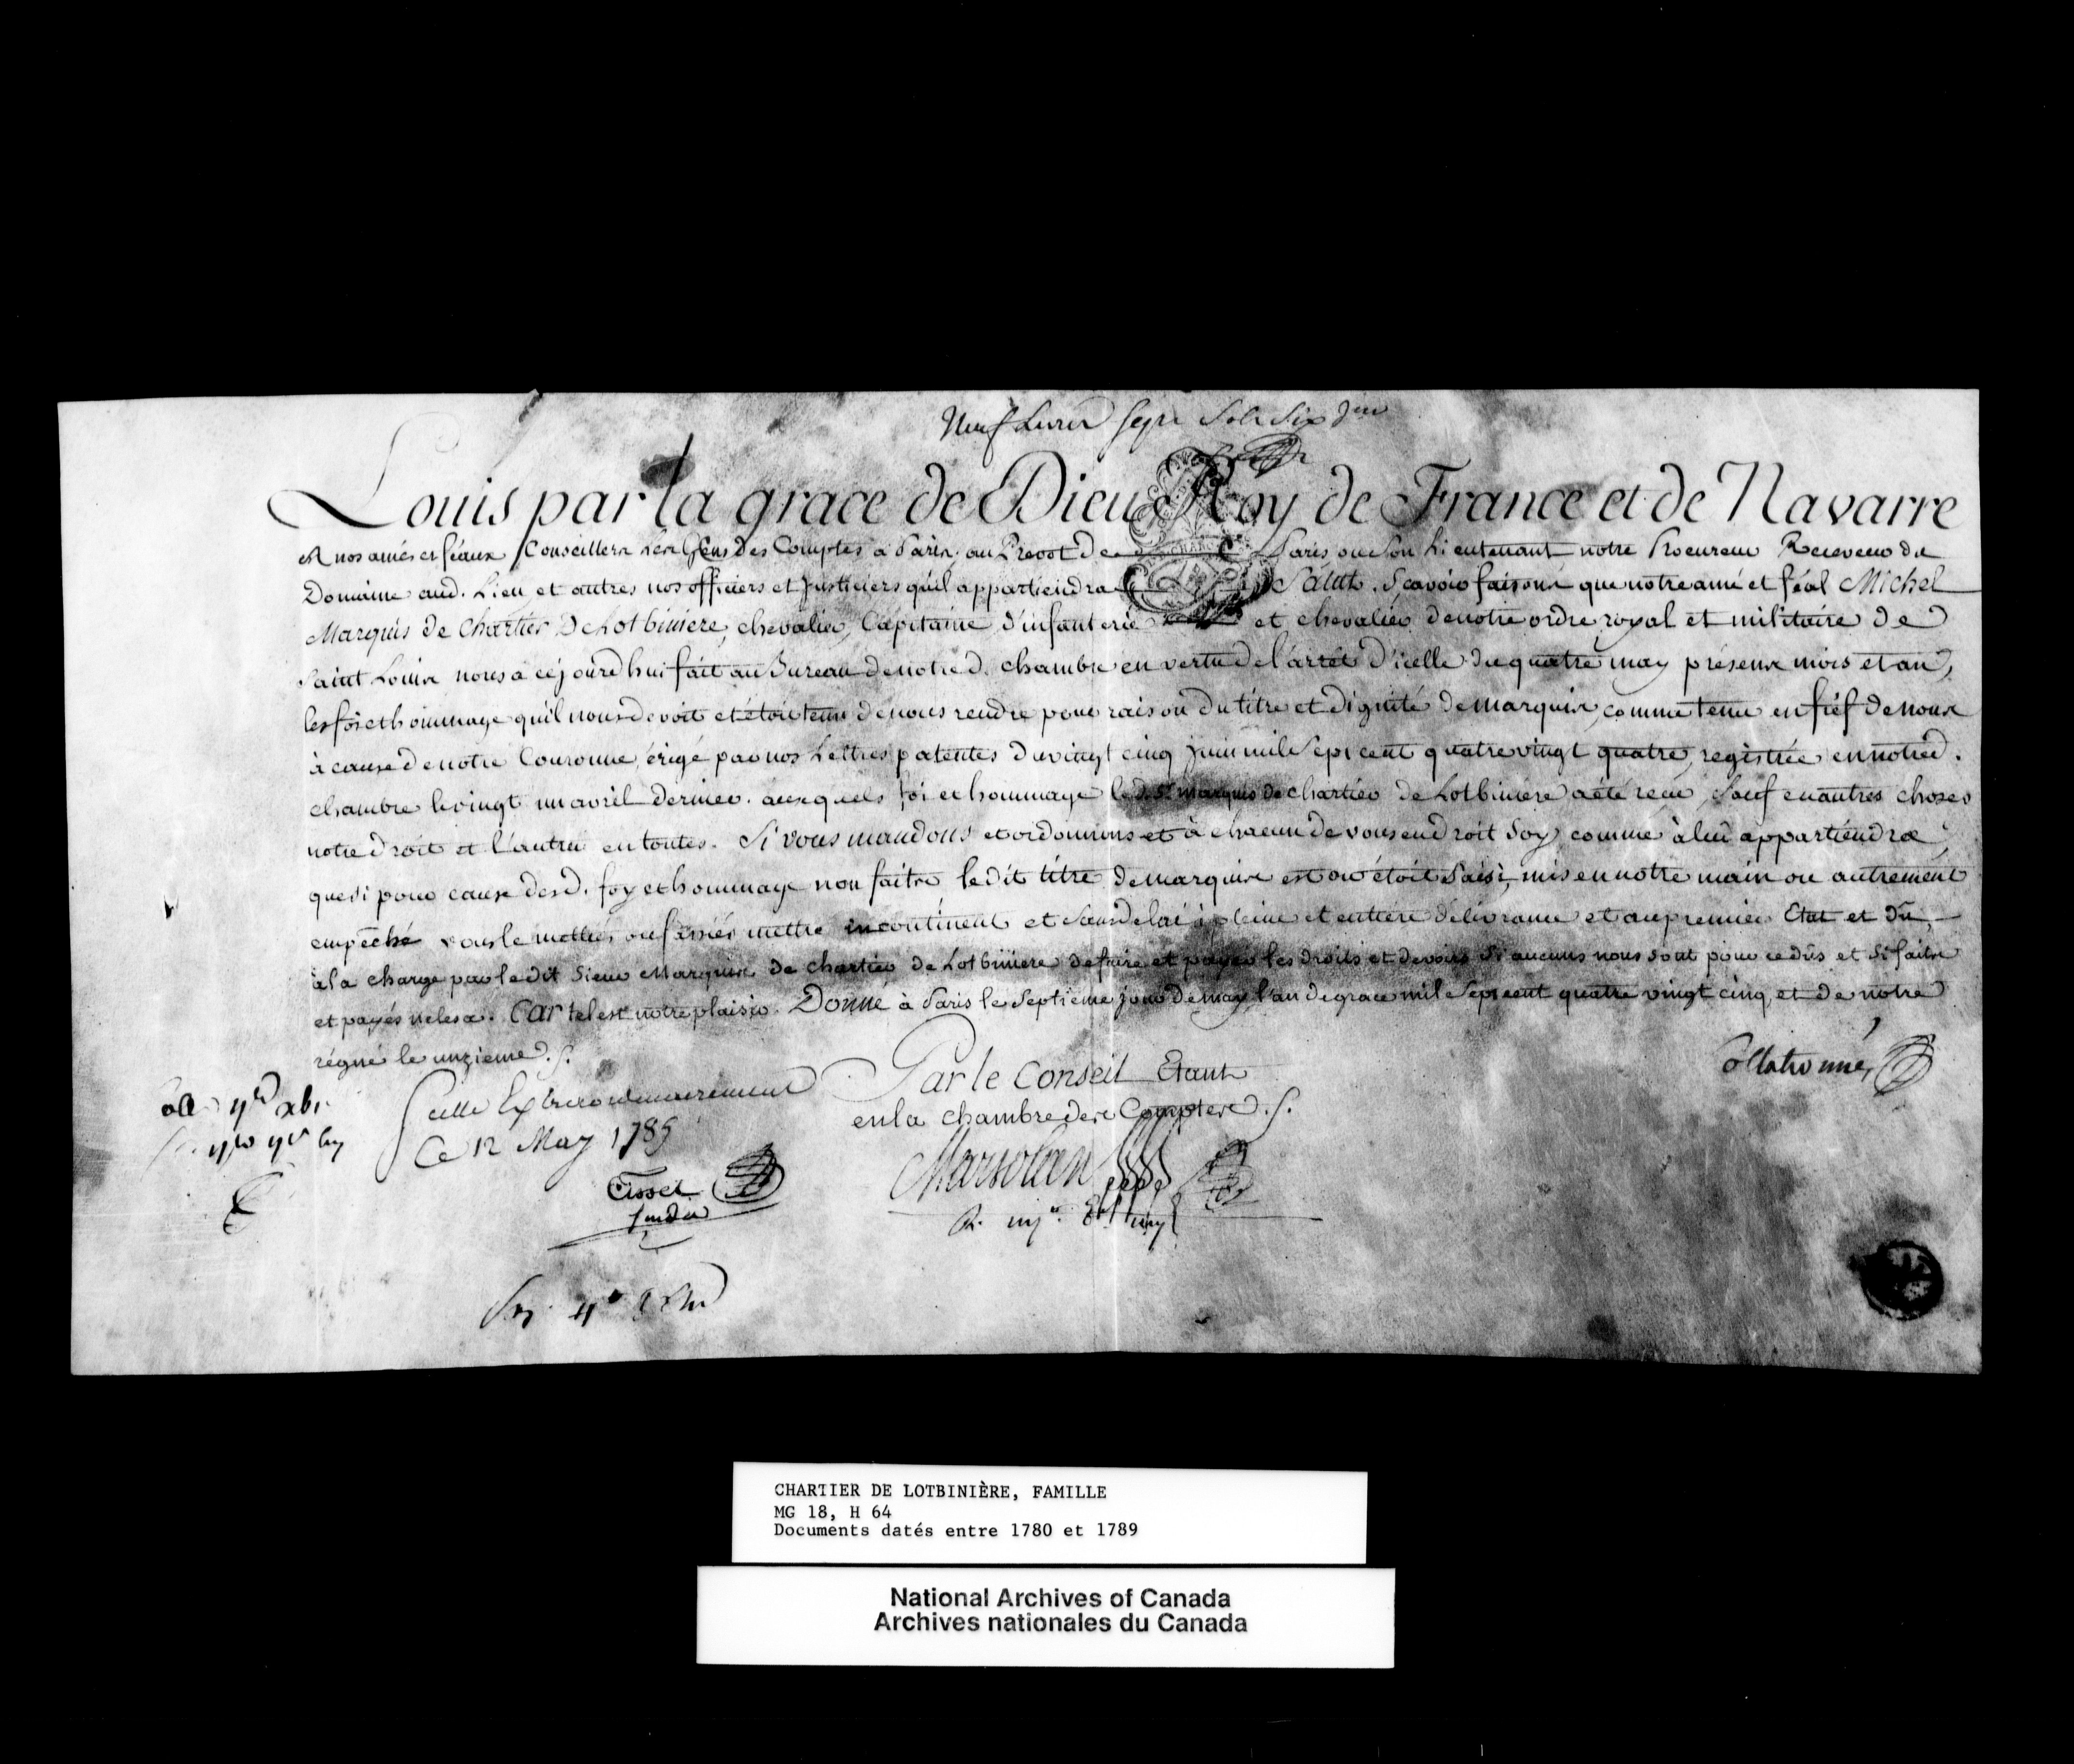 Neuf Livres sept Sols Six d.
Louis par la grace de Dieu Roy de France et de Navarre
A nos amés et féaux Conseillers les Gens des Comptes à Paris, au Prevot de Paris ou son Lieutenant notre Procureur Receveur du
Domaine aud. Lieu et autres nos officiers et justiciers qu'il appartiendra Salut. Sçavoir faisons que notre amé et féal Michel
Marquis de Chartier De Lotbiniere, chevalier, Capitaine d'infanterie et chevalier de notre ordre royal et militaire de
Saint Louis nous a cejourd'hui fait au Bureau de notred. chambre en vertu de l'arrêt d'icelle du quatre may présens mois et an,
les foi et hommage qu'il nous devoit et étoit tenu de nous rendre pour raison du titre et dignité de marquis, comme tenu en fief de nous
à cause de notre Couronne, érigé par nos Lettres patentes du vingt cinq juin mil sept cent quatre vingt quatre, registrée en notred.
chambre le vingt un avril dernier. auxquels foi et hommage led. Sr. marquis de chartier de Lotbiniere a été reçu, sauf en autres choses
notre droit et l'autrui en toutes. Si vous mandons et ordonnons et à chacun de vous en droit soy comme à lui appartiendra,
que si pour cause desd. foy et hommage non faits ledit titre de marquis est ou étoit saisi, mis en notre main ou autrement
empêché vous le mettiés ou fassiés mettre incontinent et sans delai à pleine et entiere délivrance et au premier Etat et dû,
à la charge par ledit Sieur Marquis de chartier de Lotbiniere de faire et payer les droits et devoirs si aucuns nous sont pour ce dûs et si faits
et payés ne les a. Car tel est notre plaisir. Donné à Paris le septieme jour de may, l'an de grace mil sept cent quatre vingt cinq, et de notre
régne le unzieme.
Collationné
Par le Conseil Etant
en la chambre des Comptes.
Scellé Extraordinairement
Ce 12 May 1785
Marsolan
CHARTIER DE LOTBINIÈRE, FAMILLE
MG 18, H 64
Documents datés entre 1780 et 1789
National Archives of Canada
Archives nationales du Canada